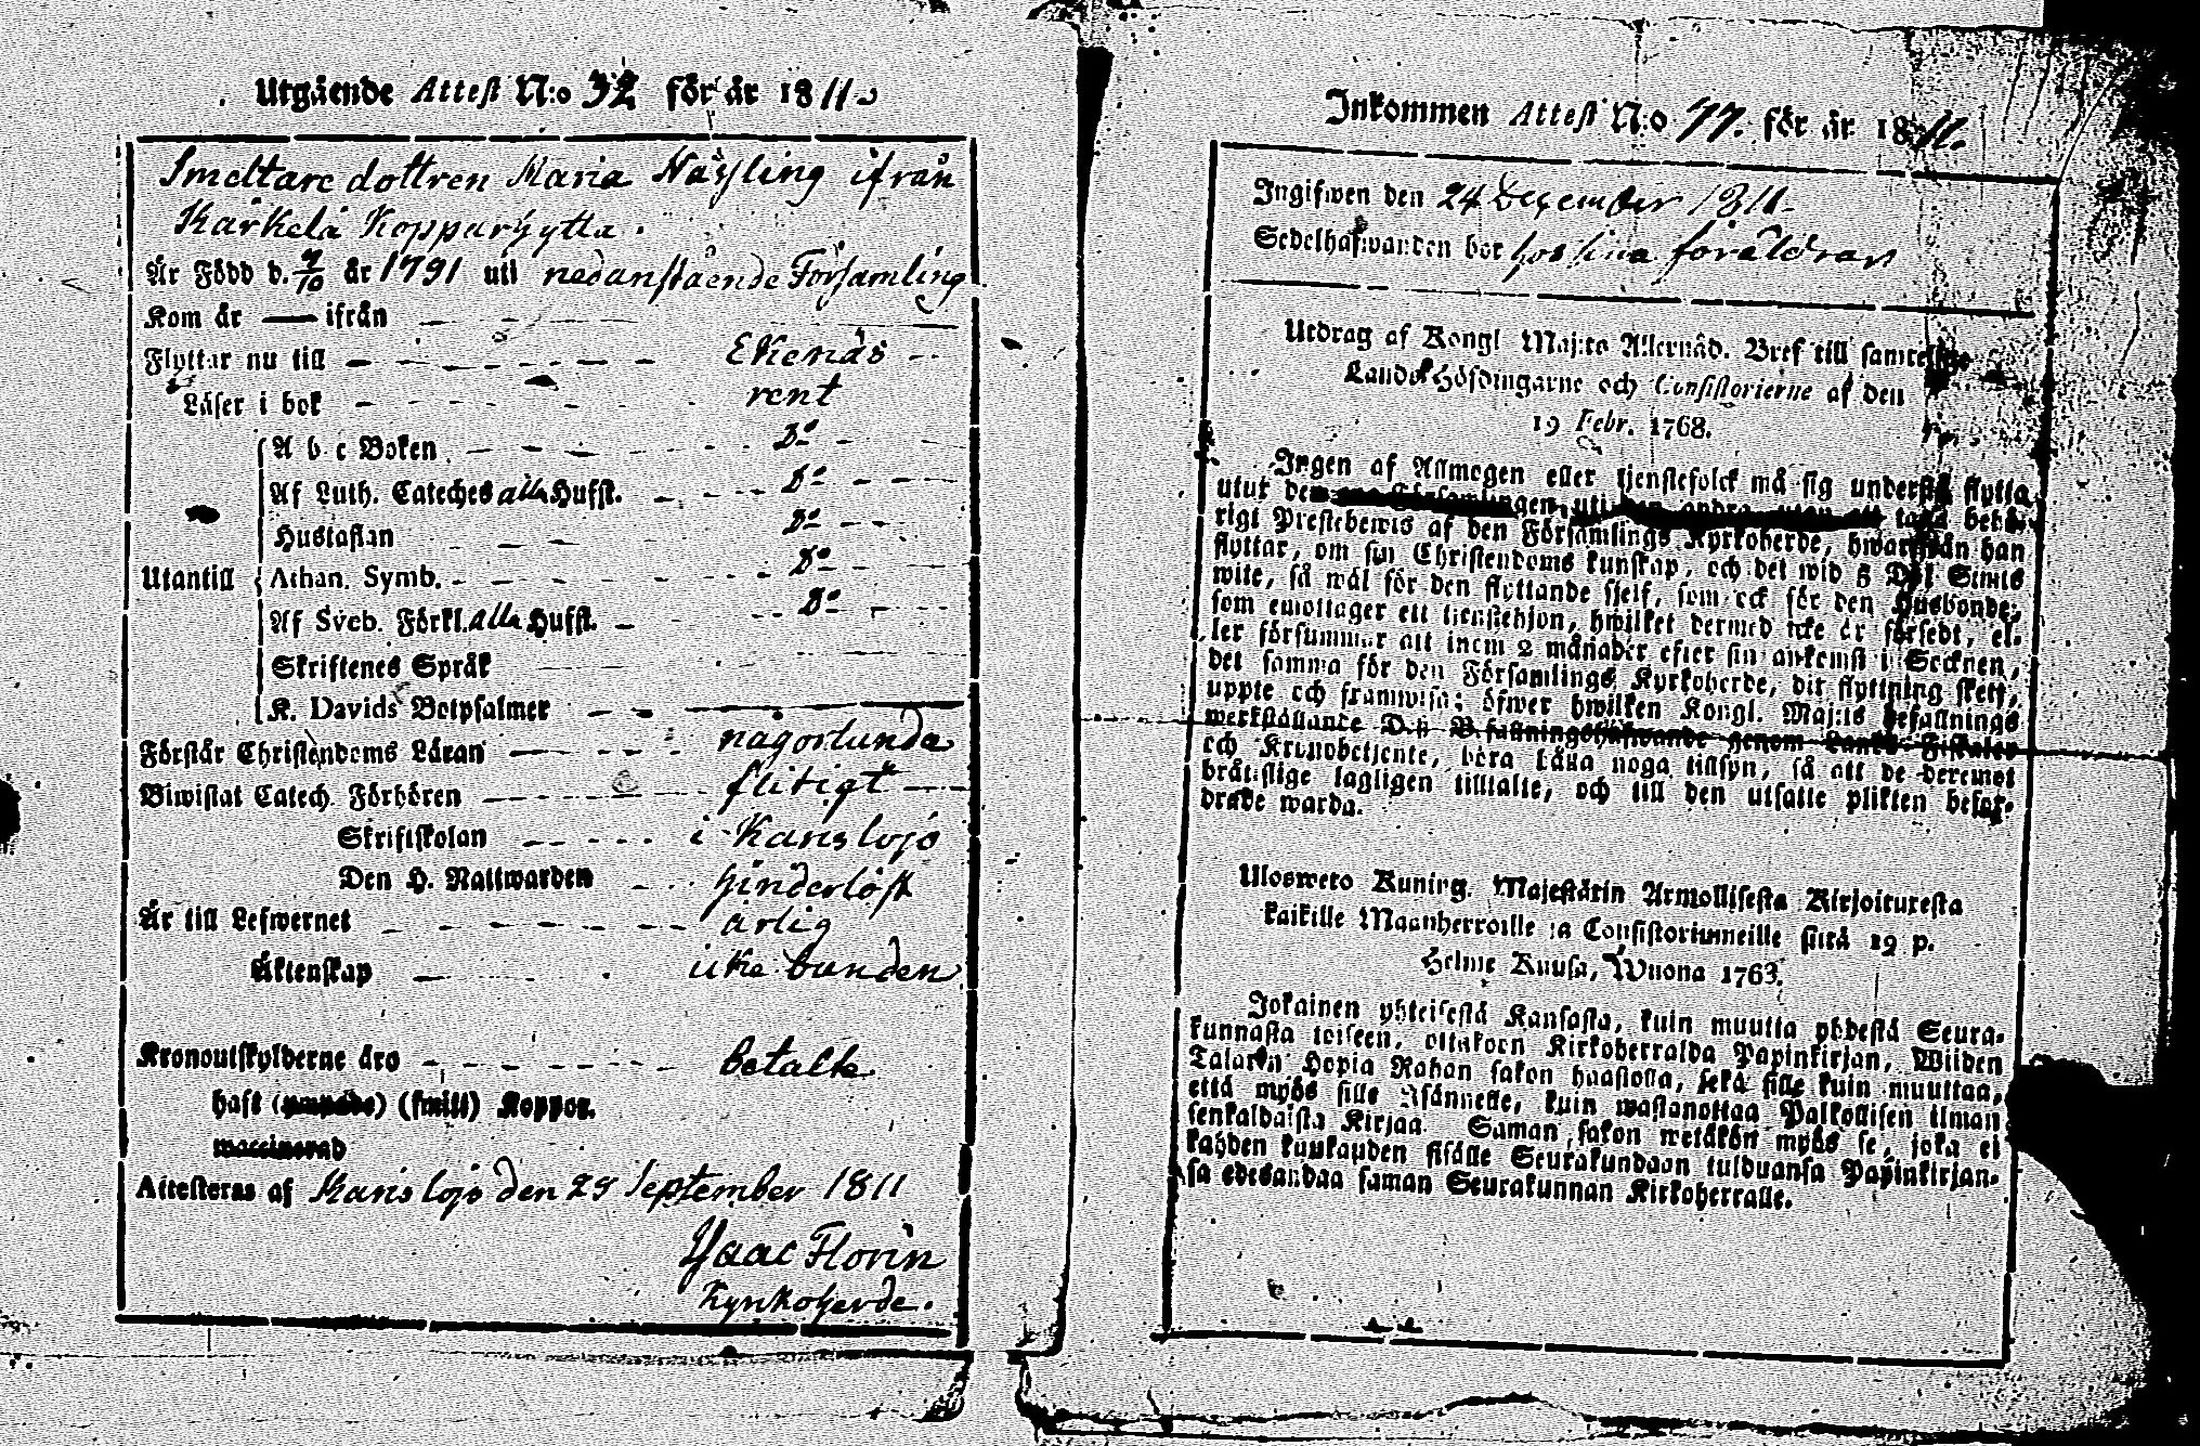 Utgående Attest N:o 32 för år 1811
Smeltare dottren Maria Näsling ifrån
Kärkelä Kopparhytta.
År Född d. 7/10 år 1791 uti nedanstående Församling
Kom år — ifrån
Flyttar nu till Ekenäs
Läser i bok rent
A b c Boken Do
Af Luth. Cateches alla Hufst. Do
Hustaflan Do
Utantill
Athan. Symb. Do
Af Sveb. Förkl. alla Hufst. Do
Skriftenes Språk
K. Davids Botpsalmer
Förstår Christendoms Läran någorlunda
Biwistat Catech. Förhören flitigt
Skriftskolan i Karislojo
Den H. Nattwarden hinderlöst
Är till Lefwernet ärlig
Äktenskap icke bunden
Kronoutskylderne äro betalte
haft (små) Koppor.
waccinerad
Attesteras af Karislojo den 29 September 1811
Isaac Florin
Kyrkoherde.
Inkommen Attest N:o 77. för år 1811.
Ingifwen den 24 December 1811
Sedelhafwanden bor hos sina föräldrar
Utdrag af Kongl Maj:ts Allernåd. Bref till samtelige
Landshöfdingarne och Consistorierne af den
19 Febr. 1768.
Ingen af Allmogen eller tjenstefolck må sig understå flytta
utur den ena Församlingen uti den andra utan att taga behö-
rigt Prestebewis af den Församlings Kyrkoherde, hwarifrån han
flyttar, om sin Christendoms kunskap, och det wid 5 Dal Smts
wite, så wäl för den flyttande sjelf, som ock för den Husbonde,
som emottager ett tienstehjon, hwilket dermed icke är försedt, el-
ler försummar att inom 2 månader efter sin ankomst i Socknen,
det samma för den Församlings Kyrkoherde, dit flyttning skett,
uppte och framwisa; öfwer hwilken Kongl. Maj:ts befallnings
werkställante Dess Befallningshafwande genom Lands-Fiskaler
och Kronobetjente, böra hålla noga tillsyn, så att de deremot
bråtslige lagligen tilltalte, och till den utsatte plikten befor-
drade warda.
Ulosweto Kuning. Majestätin Armollisesta Kirjoituresta
kaikille Maanherroille ja Consistoriumneille siitä 19 p.
Helme Kuusa, Wuona 1763.
Jokainen yhteisestä Kansasta, kuin muutta yhdestä Seura-
kunnasta toiseen, ottakoon Kirkoherralda Papinkirjan, Wiiden
Talarin Hopia Rahan sakon haastolla, sekä sille kuin muuttaa,
että myös sille Isännelle, kuin wastanottaa Palkollisen ilman
senkaldaista Kirjaa. Saman sakon wetäkön myös se, joka ei
kahden kuukauden sisälle Seurakundaan tulduansa Papinkirjan-
sa edesandaa saman Seurakunnan Kirkoherralle.